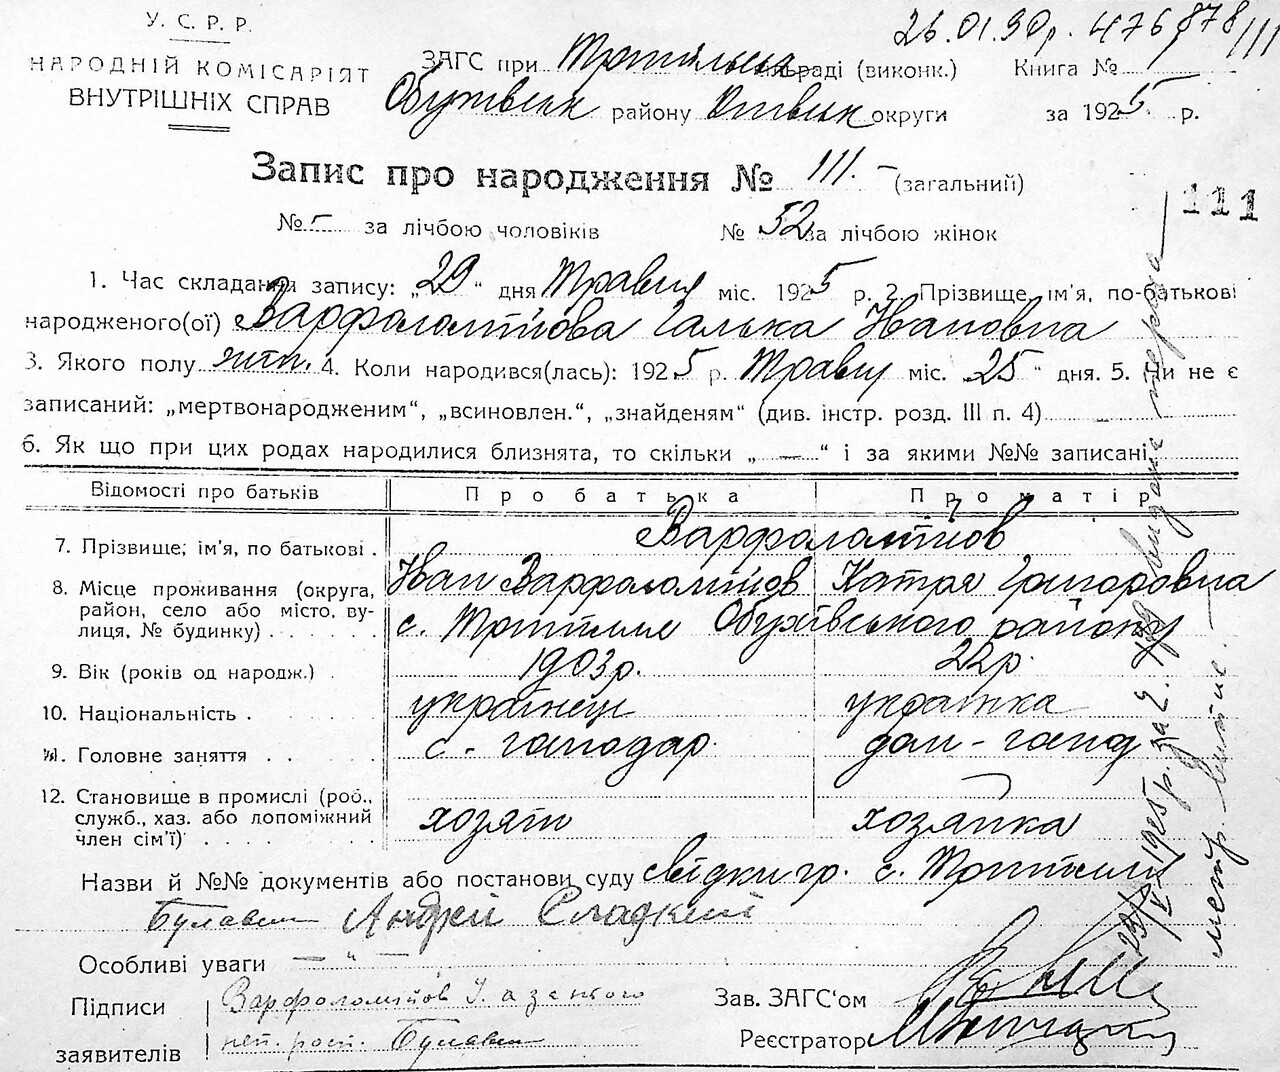 У. С. Р. Р.
НАРОДНІЙ КОМІСАРІЯТ
ВНУТРІШНІХ СПРАВ
26.01.90р. 476 878/111
ЗАГС при раді (виконк.) Книга №
району округи за 1925 р.
Запис про народження № 111. – (загальний)
111
№ – за лічбою чоловіків № 52 за лічбою жінок
1. Час складання запису: „29“ дня Травня міс. 1925 р. 2. Прізвище, ім'я, по-батькові
народженого(ої) Варфоломіїова Галька Івановна
3. Якого полу жін. 4. Коли народився(лась): 1925 р. Травня міс. 25“ дня. 5. Чи не є
записаний: „мертвонародженим“, „всиновлен.“, „знайденям“ (див. інстр. розд. III п. 4) –
6. Як що при цих родах народилися близнята, то скільки „ — “ і за якими №№ записані
Відомості про батьків Про батька Про матір
7. Прізвище, ім'я, по батькові . Варфоломіїов
Іван Варфоломіїов Катря Григоровна
8. Місце проживання (округа,
район, село або місто, ву-
лиця, № будинку) . . . . . . с. Трипілля Обухівського району
9. Вік (років од народж.) . 1903р. 22р.
10. Національність . українець українка
11. Головне заняття . . . . . с.-господар. дом-господ
12. Становище в промислі (роб.,
служб., хаз. або допоміжний
член сім'ї) . . . . . хозяїн хозяйка
Назви й №№ документів або постанови суду свідки гр. с. Трипілля
Андрей Сладкий
Особливі уваги — „ —
Підписи
заявителів
Варфоломіїов І. а за нього
неп. росп.
Зав. ЗАГС'ом
Реєстратор